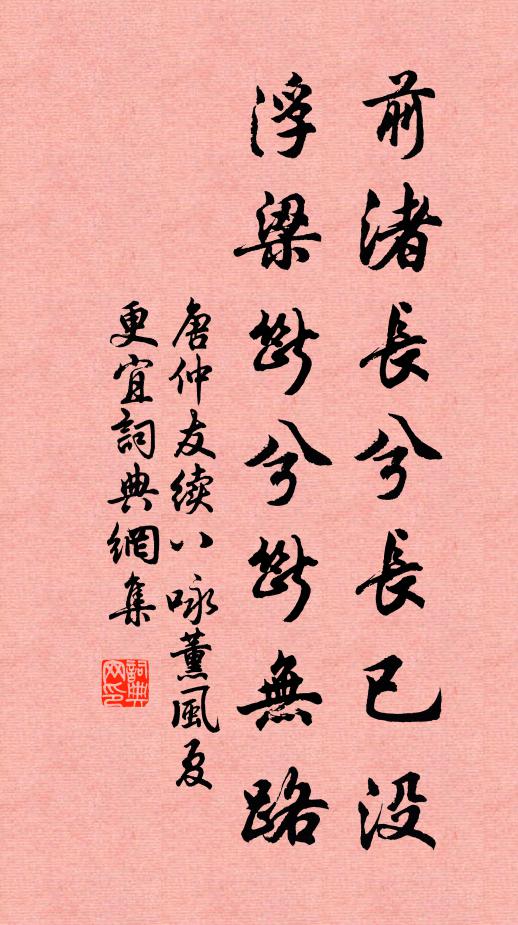 前渚長兮長已没
浮梁斷兮斷無路
唐仲友續八咏薰風夏
更宜詞典網集
詞典网印